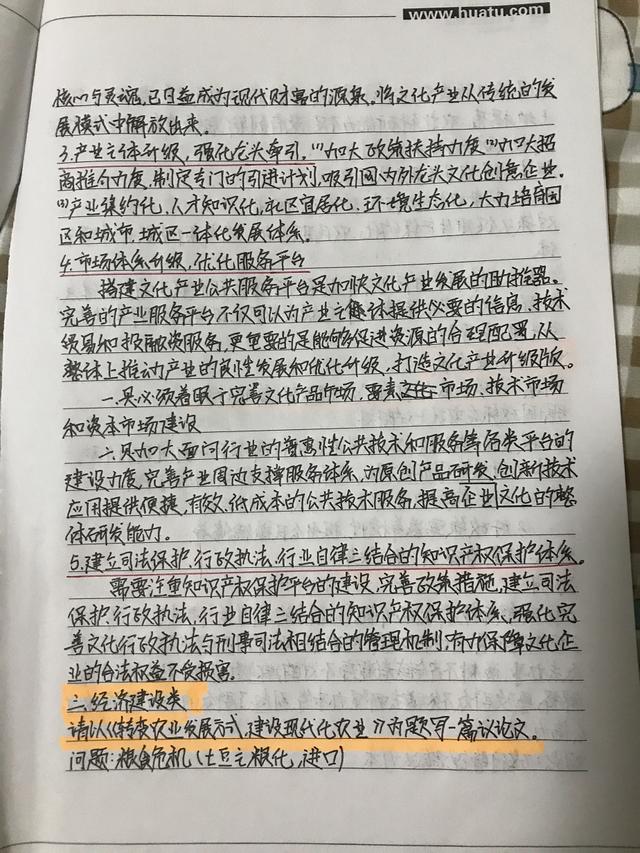 www.huatu.com
核心与灵魂,已日益成为现代财富的源泉。将文化产业从传统的发
展模式中解放出来。
3.产业主体升级,强化龙头牵引。⑴加大政策扶持力度⑵加大招
商推介力度,制定专门的引进计划,吸引国内外龙头文化创意企业。
⑶产业集约化、人才知识化、社区宜居化、环境生态化,大力培育园
区和城市、城区一体化发展体系。
4.市场体系升级,优化服务平台
搭建文化产业公共服务平台是加快文化产业发展的助推器。
完善的产业服务平台不仅可以为产业主体提供必要的信息、技术
贸易和投融资服务,更重要的是能够促进资源的合理配置,从
整体上推动产业的创性发展和优化升级,打造文化产业升级版。
一是必须着眼于完善文化产品市场,要素市场、技术市场
和资本市场建设
二是加大面向行业的普惠性公共技术和服务等各类平台的
建设力度,完善产业周边支撑服务体系,为原创产品研发、创新技术
应用提供便捷,有效、低成本的公共技术服务,提高企业文化的整
体研发能力。
5.建立司法保护、行政执法、行业自律三结合的知识产权保护体系。
需要注重知识产权保护平台的建设,完善政策措施,建立司法
保护、行政执法,行业自律三结合的知识产权保护体系,强化完
善文化行政执法与刑事司法相结合的管理机制,有力保障文化企
业的合法权益不受损害。
二.经济建设类
请以《转变农业发展方式,建设现代化农业》为题写一篇议论文。
问题:粮食危机(土豆主粮化,进口)